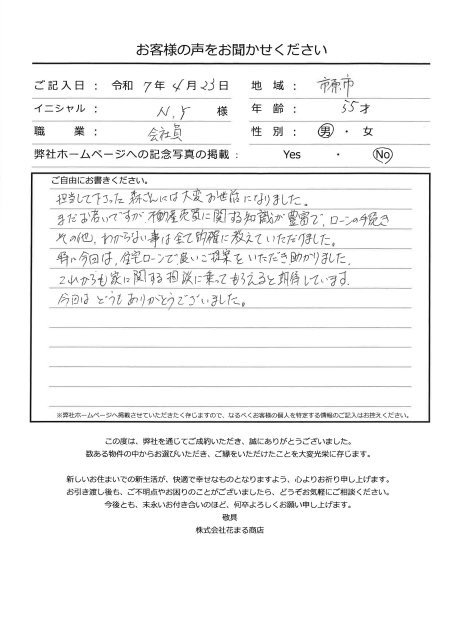 お客様の声をお聞かせください
ご記入日： 令和 7年 4月 23日 地 域： 市原市
イニシャル： N.Y 様 年 齢： 55才
職 業： 会社員 性 別： 男 ・ 女
弊社ホームページへの記念写真の掲載： Yes ・ No
ご自由にお書きください。
担当して下さった 森さんには大変お世話になりました。
まだお若いですが、不動産売買に関する知識が豊富で、ローンの手続き
その他、わからない事は全て的確に教えていただけました。
特に今回は、住宅ローンで良いご提案をいただき助かりました。
これからも家に関する相談に乗ってもらえると期待しています。
今回は どうもありがとうございました。
※弊社ホームページへ掲載させていただきたく存じますので、なるべくお客様の個人を特定する情報のご記入はお控えください。
この度は、弊社を通じてご成約いただき、誠にありがとうございました。
数ある物件の中からお選びいただき、ご縁をいただけたことを大変光栄に存じます。
新しいお住まいでの新生活が、快適で幸せなものとなりますよう、心よりお祈り申し上げます。
お引き渡し後も、ご不明点やお困りのことがございましたら、どうぞお気軽にご相談ください。
今後とも、末永いお付き合いのほど、何卒よろしくお願い申し上げます。
敬具
株式会社花まる商店